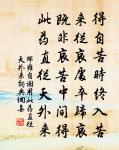 得自苦時終入苦
來從哀處卒歸哀
既非哀苦中間得
此樂直從天外來
邵雍 自謝用此樂直從
天外來 詞典網集